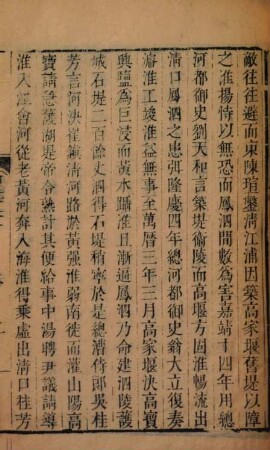 敵往往避而東陳瑄鑿清江浦因築高家堰舊堤以障
之淮揚恃以無恐而鳳泗間數為害嘉靖十四年用總
河都御史劉天和言築堤衞陵而高堰方固淮暢流出
清口鳳泗之患弭隆慶四年總河都御史翁大立復奏
濬淮工竣淮益無事至萬曆三年三月高家堰決高寶
興鹽為巨浸而黃水躡淮且漸逼鳳泗乃命建泗陵護
城石堤二百餘丈泗得石堤稍寧於是總漕侍郎吳桂
芳言河決崔鎮清河路淤黃强淮弱南徙而灌山陽高
寶請急護湖堤帝令熟計其便給事中湯聘尹議請導
淮入江會河從老黃河奔入海淮得乘虛出清口桂芳